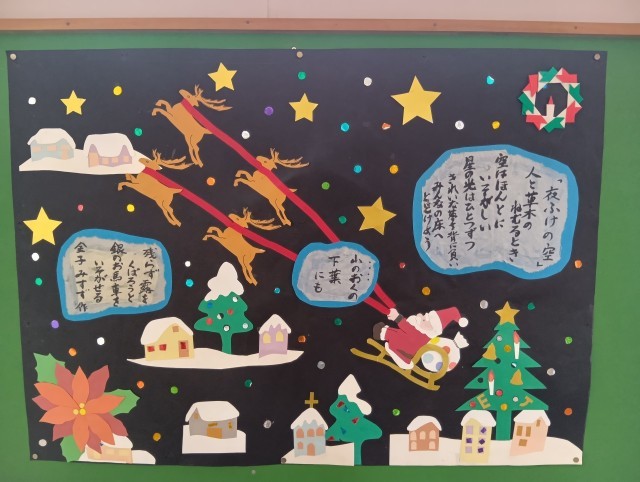 「夜ふけの空」
人と草木の
ねむるとき、
空はほんとに
いそがしい
星の光はひとつずつ
きれいな夢を背に負い
みんなの床へ
とどけよう
山のおくの
下葉
にも
残らず露を
くばろうと
銀のお馬車を
いそがせる
金子みすず作
E J